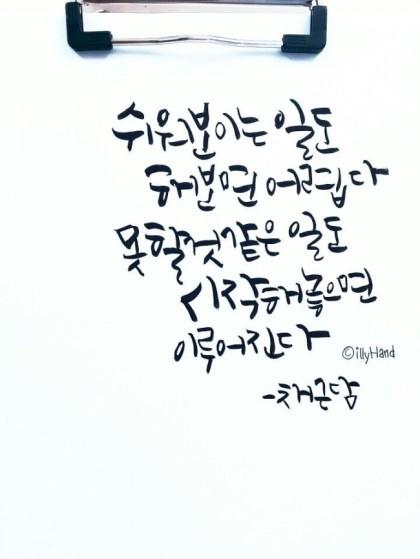 쉬워보이는 일도
해보면 어렵다
못할것같은 일도
시작해놓으면
이루어진다
©illyHand
-채근담